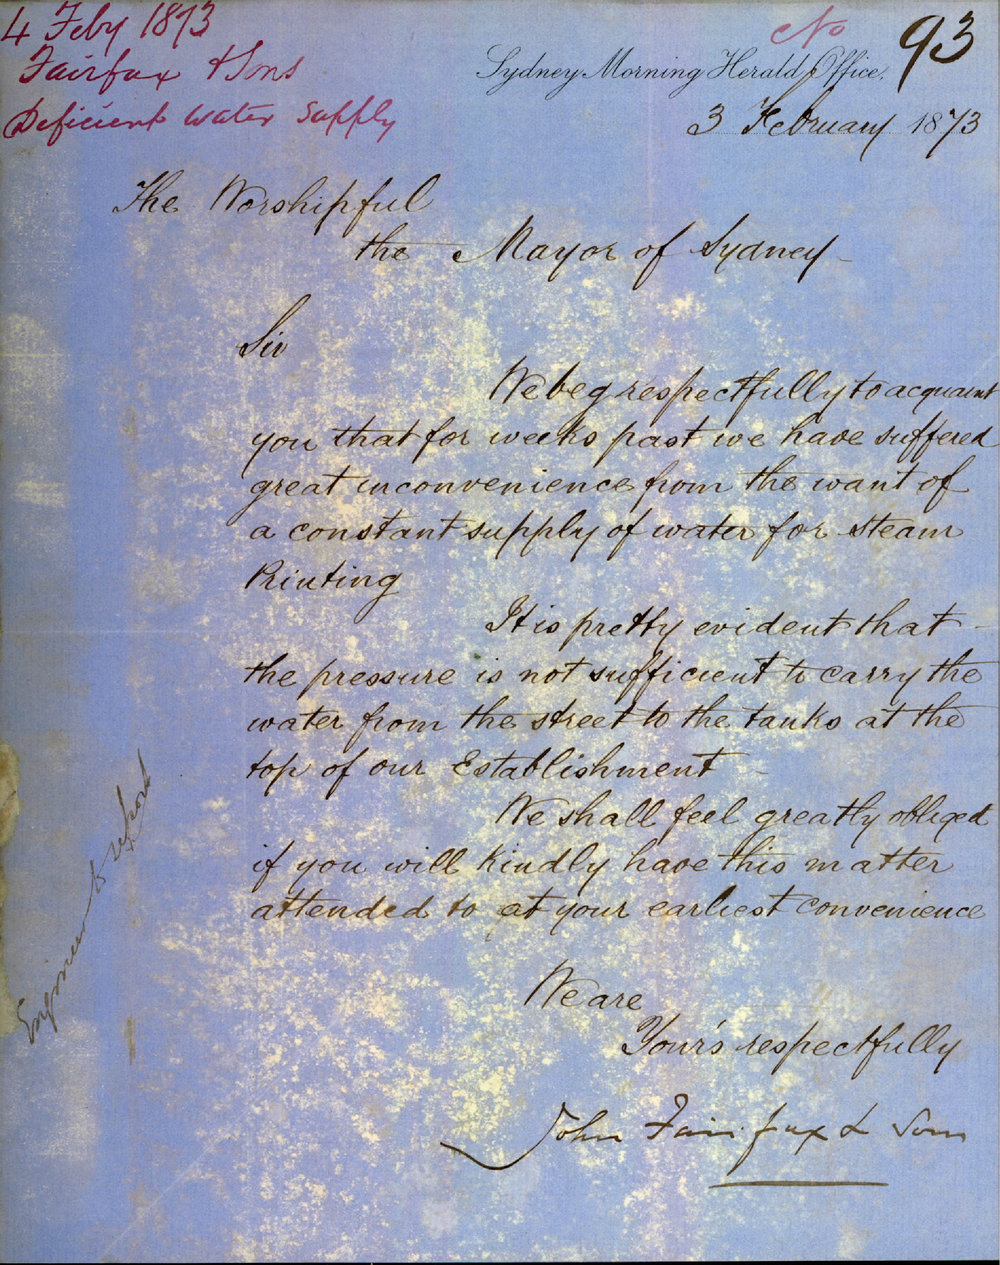 4 Feby 1873
Fairfax & Sons
Deficient Water Supply
No 93
Sydney Morning Herald Office,
3 February 1873
The Worshipful
the Mayor of Sydney
Sir
We beg respectfully to acquaint
you that for weeks past we have suffered
great inconvenience from the want of
a constant supply of water for steam
Printing
It is pretty evident that
the pressure is not sufficient to carry the
water from the street to the tanks at the
top of our Establishment
We shall feel greatly obliged
if you will kindly have this matter
attended to at your earliest convenience
We are
Your's respectfully
John Fairfax & Sons
Engineer to report